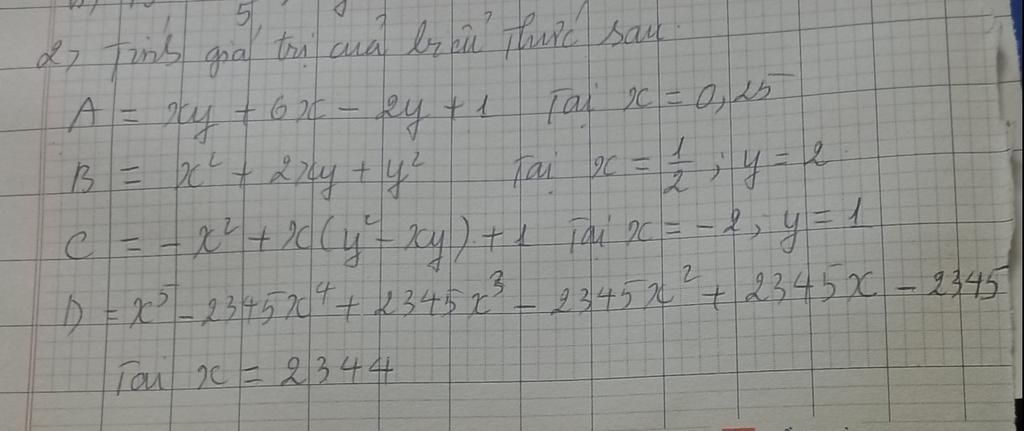 2, Tính giá trị của biểu thức sau
A = xy + 6x - 2y + 1 Tại x = 0,25
B = x² + 2xy + y² Tại x = 1/2 ; y = 2
C = - x² + x(y² - xy) + 1 Tại x = -2; y = 1
D = x⁵ - 2345x⁴ + 2345x³ - 2345x² + 2345x - 2345
Tại x = 2344